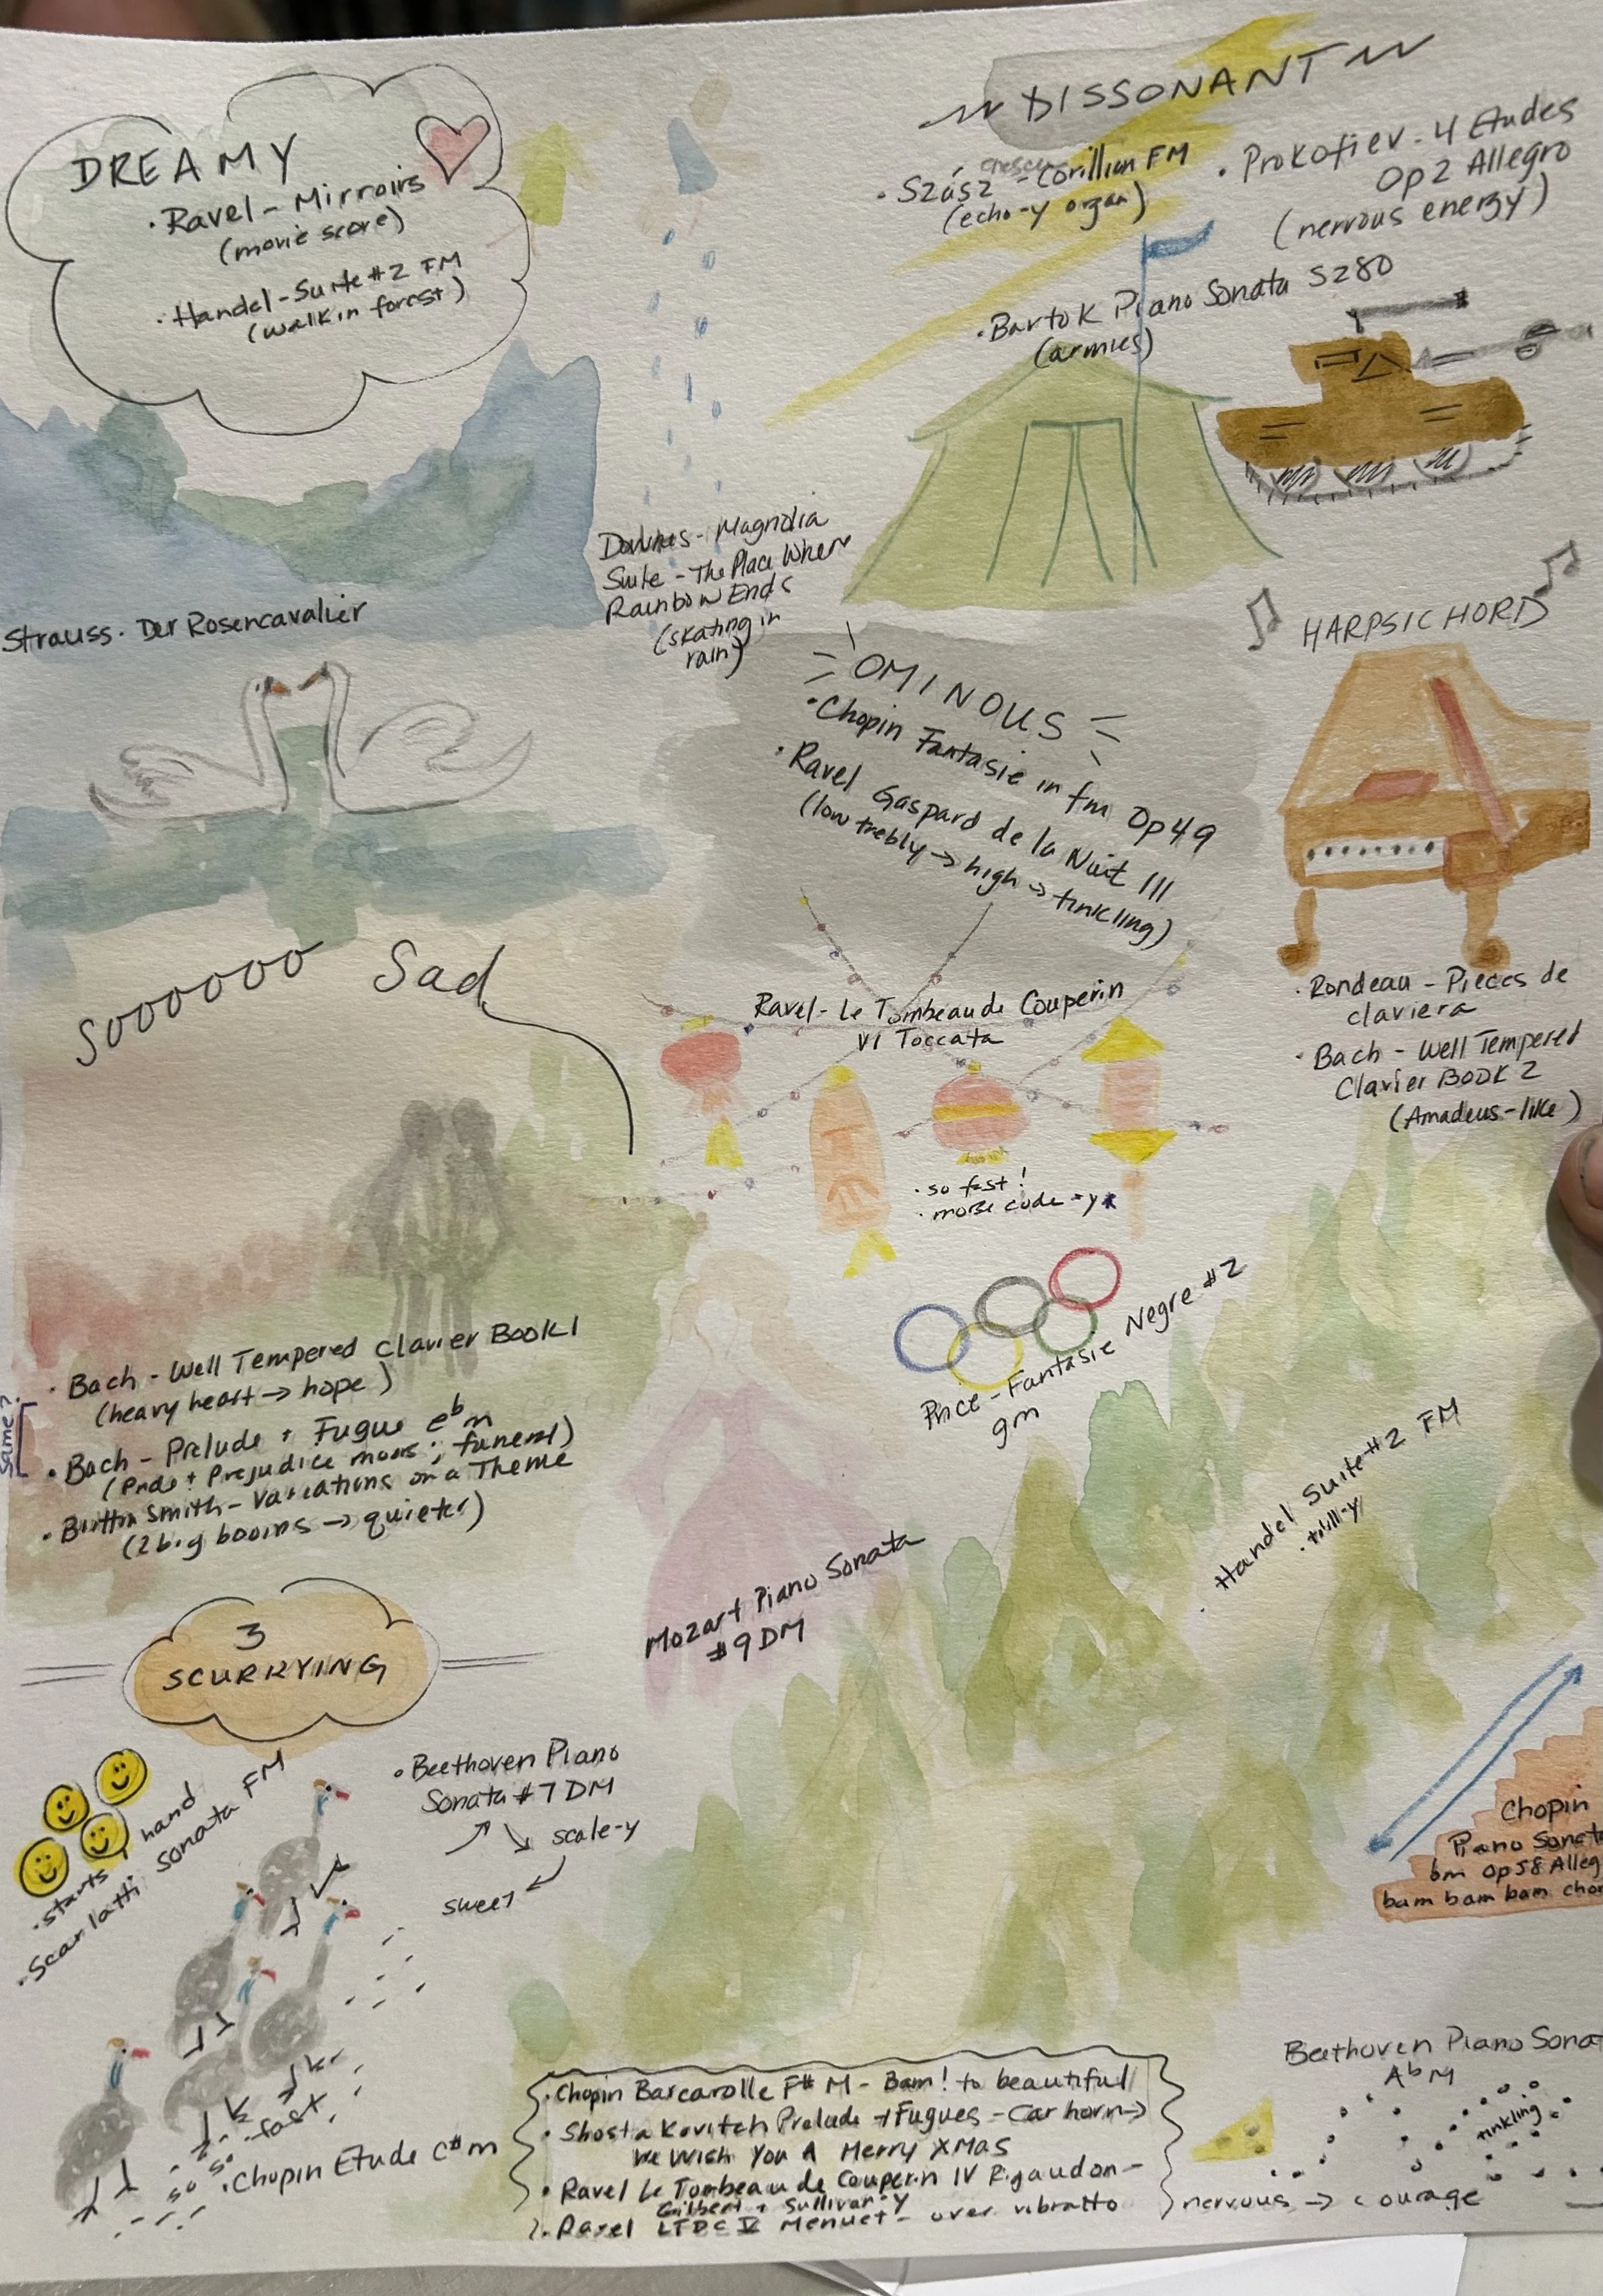 DREAMY
• Ravel - Mirroirs
(movie score)
• Handel - Suite #2 FM
(walk in forest)
DISSONANT
crescen
• Szász - Corillian FM
(echo-y organ)
• Prokofiev - 4 Etudes
Op2 Allegro
(nervous energy)
• Bartok Piano Sonata SZ80
(armies)
Strauss - Der Rosencavalier
Magnolia
Suite - The Place Where
Rainbow Ends
(skating in
rain)
OMINOUS
• Chopin Fantasie in fm Op49
• Ravel Gaspard de la Nuit III
(low trebly → high → tinkling)
HARPSICHORD
• Rondeau - Pieces de
claviera
• Bach - Well Tempered
Clavier BOOK 2
(Amadeus-like)
Sooooooo Sad
Ravel - Le Tombeau de Couperin
VI Toccata
• so fast!
• morse code-y
• Bach - Well Tempered Clavier BOOK 1
(heavy heart → hope)
same?
• Bach - Prelude + Fugue e♭m
(Pride + Prejudice moors; funeral)
• Smith - Variations on a Theme
(2 big booms → quieter)
Price - Fantasie Negre #2
gm
• Handel Suite #2 FM
• trill-y
Mozart Piano Sonata
#9 DM
3
SCURRYING
• starts 1 hand
• Scarlatti Sonata FM
• Beethoven Piano
Sonata #7 DM
scale-y
sweet
so fast
• Chopin Etude c#m
Chopin
Piano Sonat
bm Op58 Alleg
bam bam bam chor
• Chopin Barcarolle F# M - Bam! to beautiful
• Shostakovitch Prelude + Fugues - Car horn →
We Wish You A Merry XMas
• Ravel Le Tombeau de Couperin IV Rigaudon -
Gilbert + Sullivan-y
• Ravel LTDC V Menuet - over vibratto
Beethoven Piano Sona
A♭M
tinkling
nervous → courage